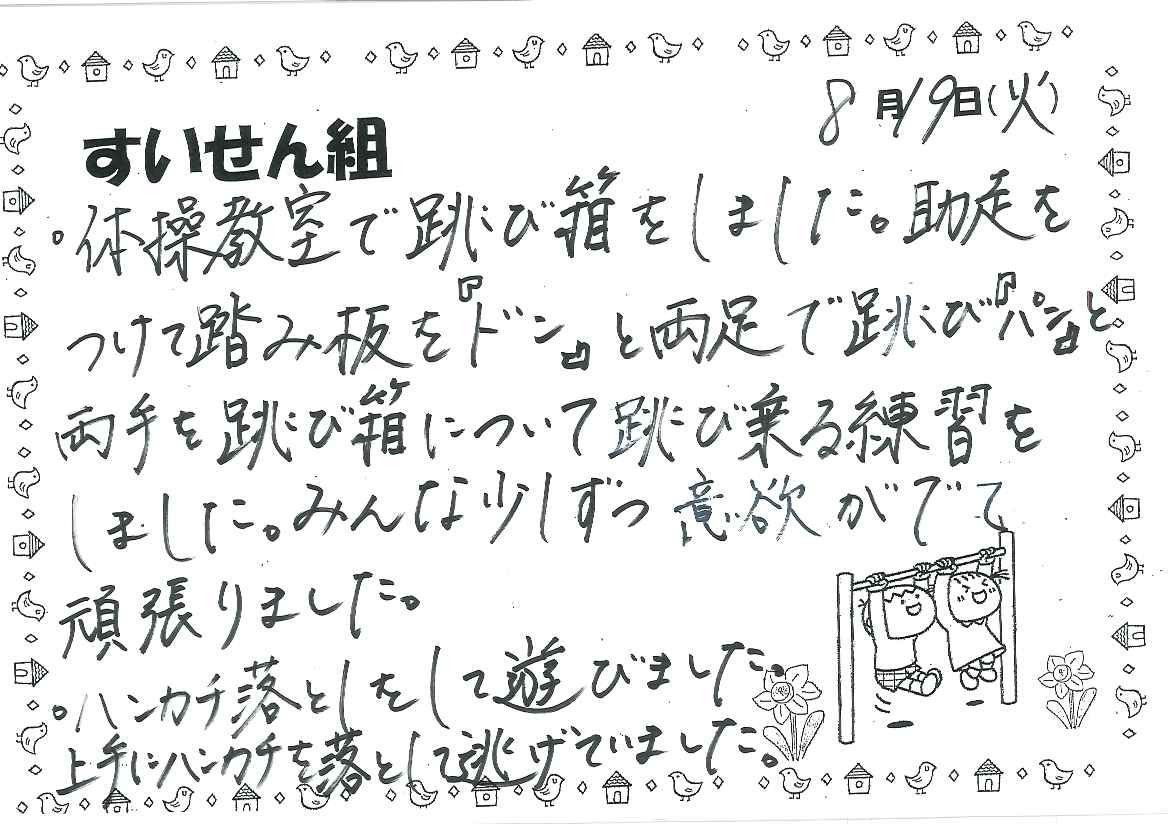 8月19日(火)
すいせん組
。体操教室で跳び箱をしました。助走を
つけて踏み板を『ドン』と両足で跳び『パン』と
両手を跳び箱について跳び乗る練習を
しました。みんな少しずつ意欲がでて
頑張りました。
。ハンカチ落としをして遊びました。
上手にハンカチを落として逃げていました。